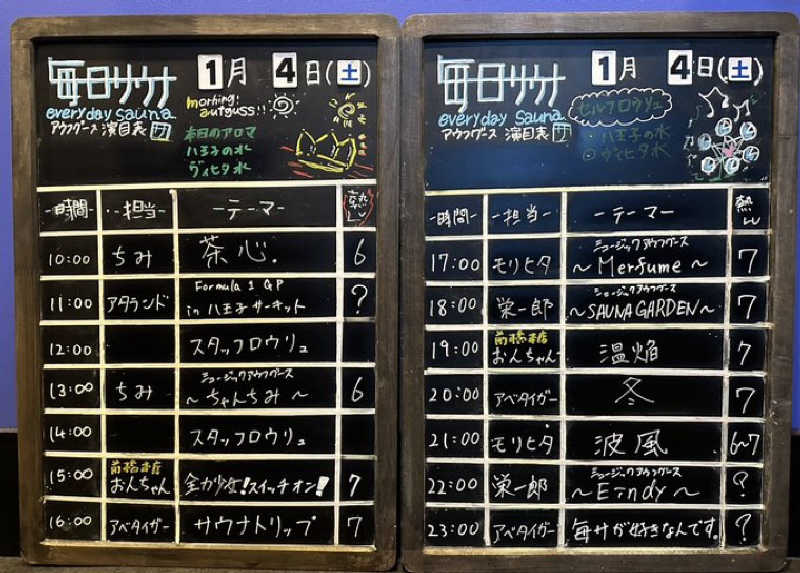 毎日サウナ 1月 4日(土)
everyday sauna
アウフグース 演目表 サ
morning
autguss!!
本日のアロマ
八王子の水
ヴィヒタ水
時間 担当 テーマ 熱し
10:00 ちみ 茶心. 6
11:00 アタランド Formula 1 GP
in 八王子サーキット ?
12:00 スタッフロウリュ
13:00 ちみ ミュージックアウフグース
~ちゃんちみ~ 6
14:00 スタッフロウリュ
15:00 前橋本店
おんちゃん 全力少女!スイッチオン! 7
16:00 アベタイガー サウナトリップ 7
毎日サウナ 1月 4日(土)
everyday sauna
アウフグース 演目表 サ
セルフロウリュ
・八王子の水
ヴィヒタ水
時間 担当 テーマ 熱し
17:00 モリヒタ ミュージックアウフグース
~Merfume~ 7
18:00 栄一郎 ミュージックアウフグース
~SAUNA GARDEN~ 7
19:00 前橋本店
おんちゃん 温焔 7
20:00 アベタイガー 冬 7
21:00 モリヒタ 波風 6~7
22:00 栄一郎 ミュージックアウフグース
?
23:00 アベタイガー 毎サが好きなんです。 ?